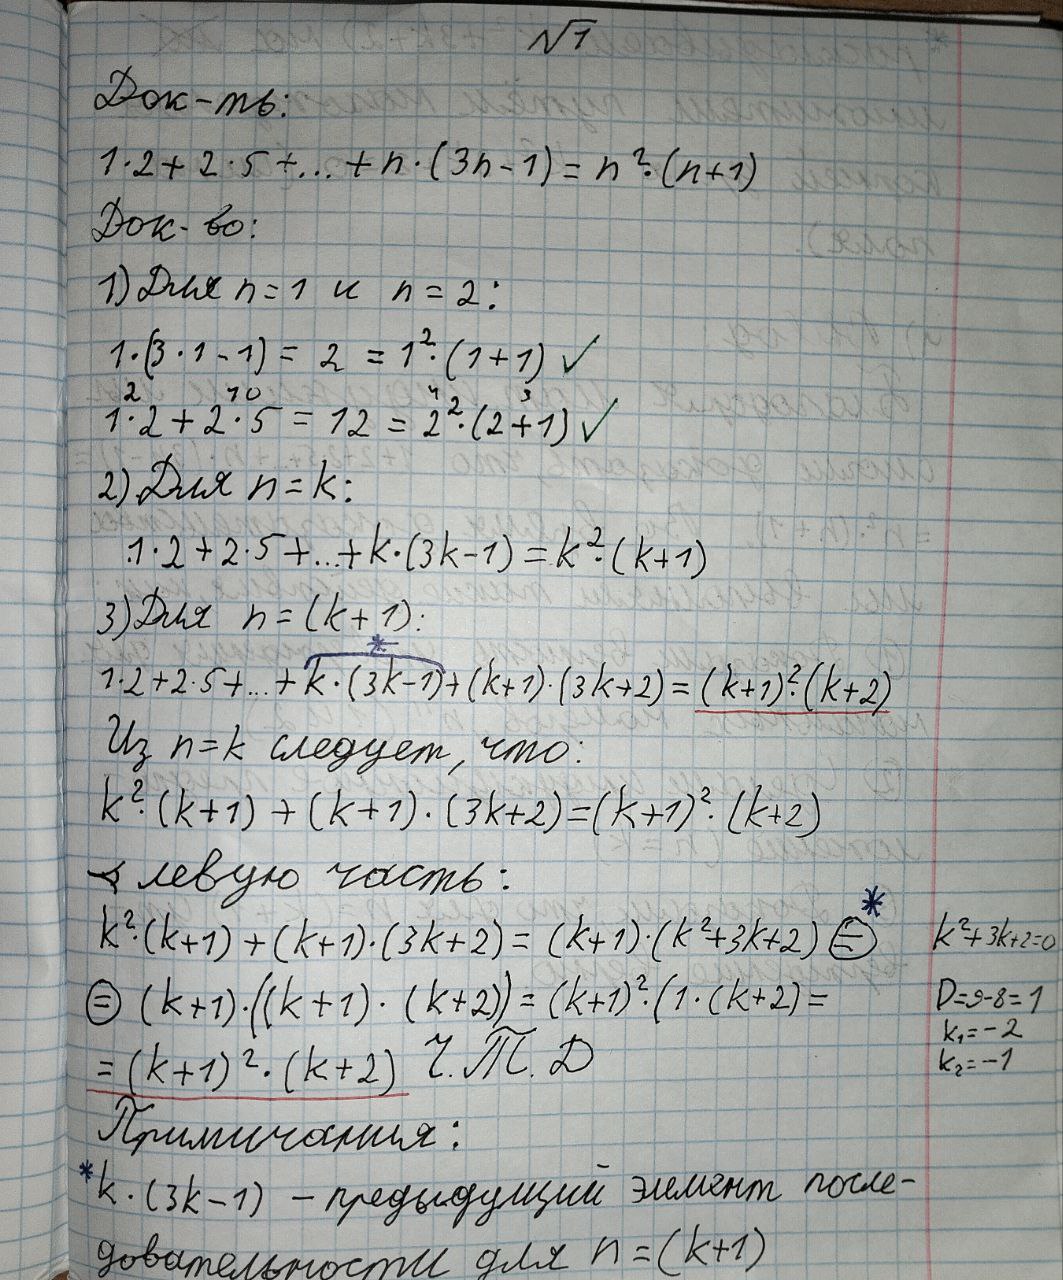 √1
Док-ть:
1·2+2·5+...+n·(3n-1)=n²·(n+1)
Док-во:
1) Для n=1 и n=2:
1·(3·1-1)=2=1²·(1+1) ✓
2 10 4 3
1·2+2·5=12=2²·(2+1) ✓
2) Для n=k:
1·2+2·5+...+k·(3k-1)=k²·(k+1)
3) Для n=(k+1):
*
1·2+2·5+...+k·(3k-1)+(k+1)·(3k+2)=(k+1)²·(k+2)
Из n=k следует, что:
k²·(k+1)+(k+1)·(3k+2)=(k+1)²·(k+2)
левую часть:
k²·(k+1)+(k+1)·(3k+2)=(k+1)·(k²+3k+2) = *
k²+3k+2=0
= (k+1)·((k+1)·(k+2))=(k+1)²·(1·(k+2)=
D=9-8=1
k₁=-2
=(k+1)²·(k+2) Ч.Т.Д
k₂=-1
Примичания:
*k·(3k-1) – предыдущий элемент после-
довательности для n=(k+1)